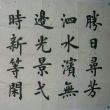 勝日尋芳
泗水濱無
邊光景弌
時新等閑